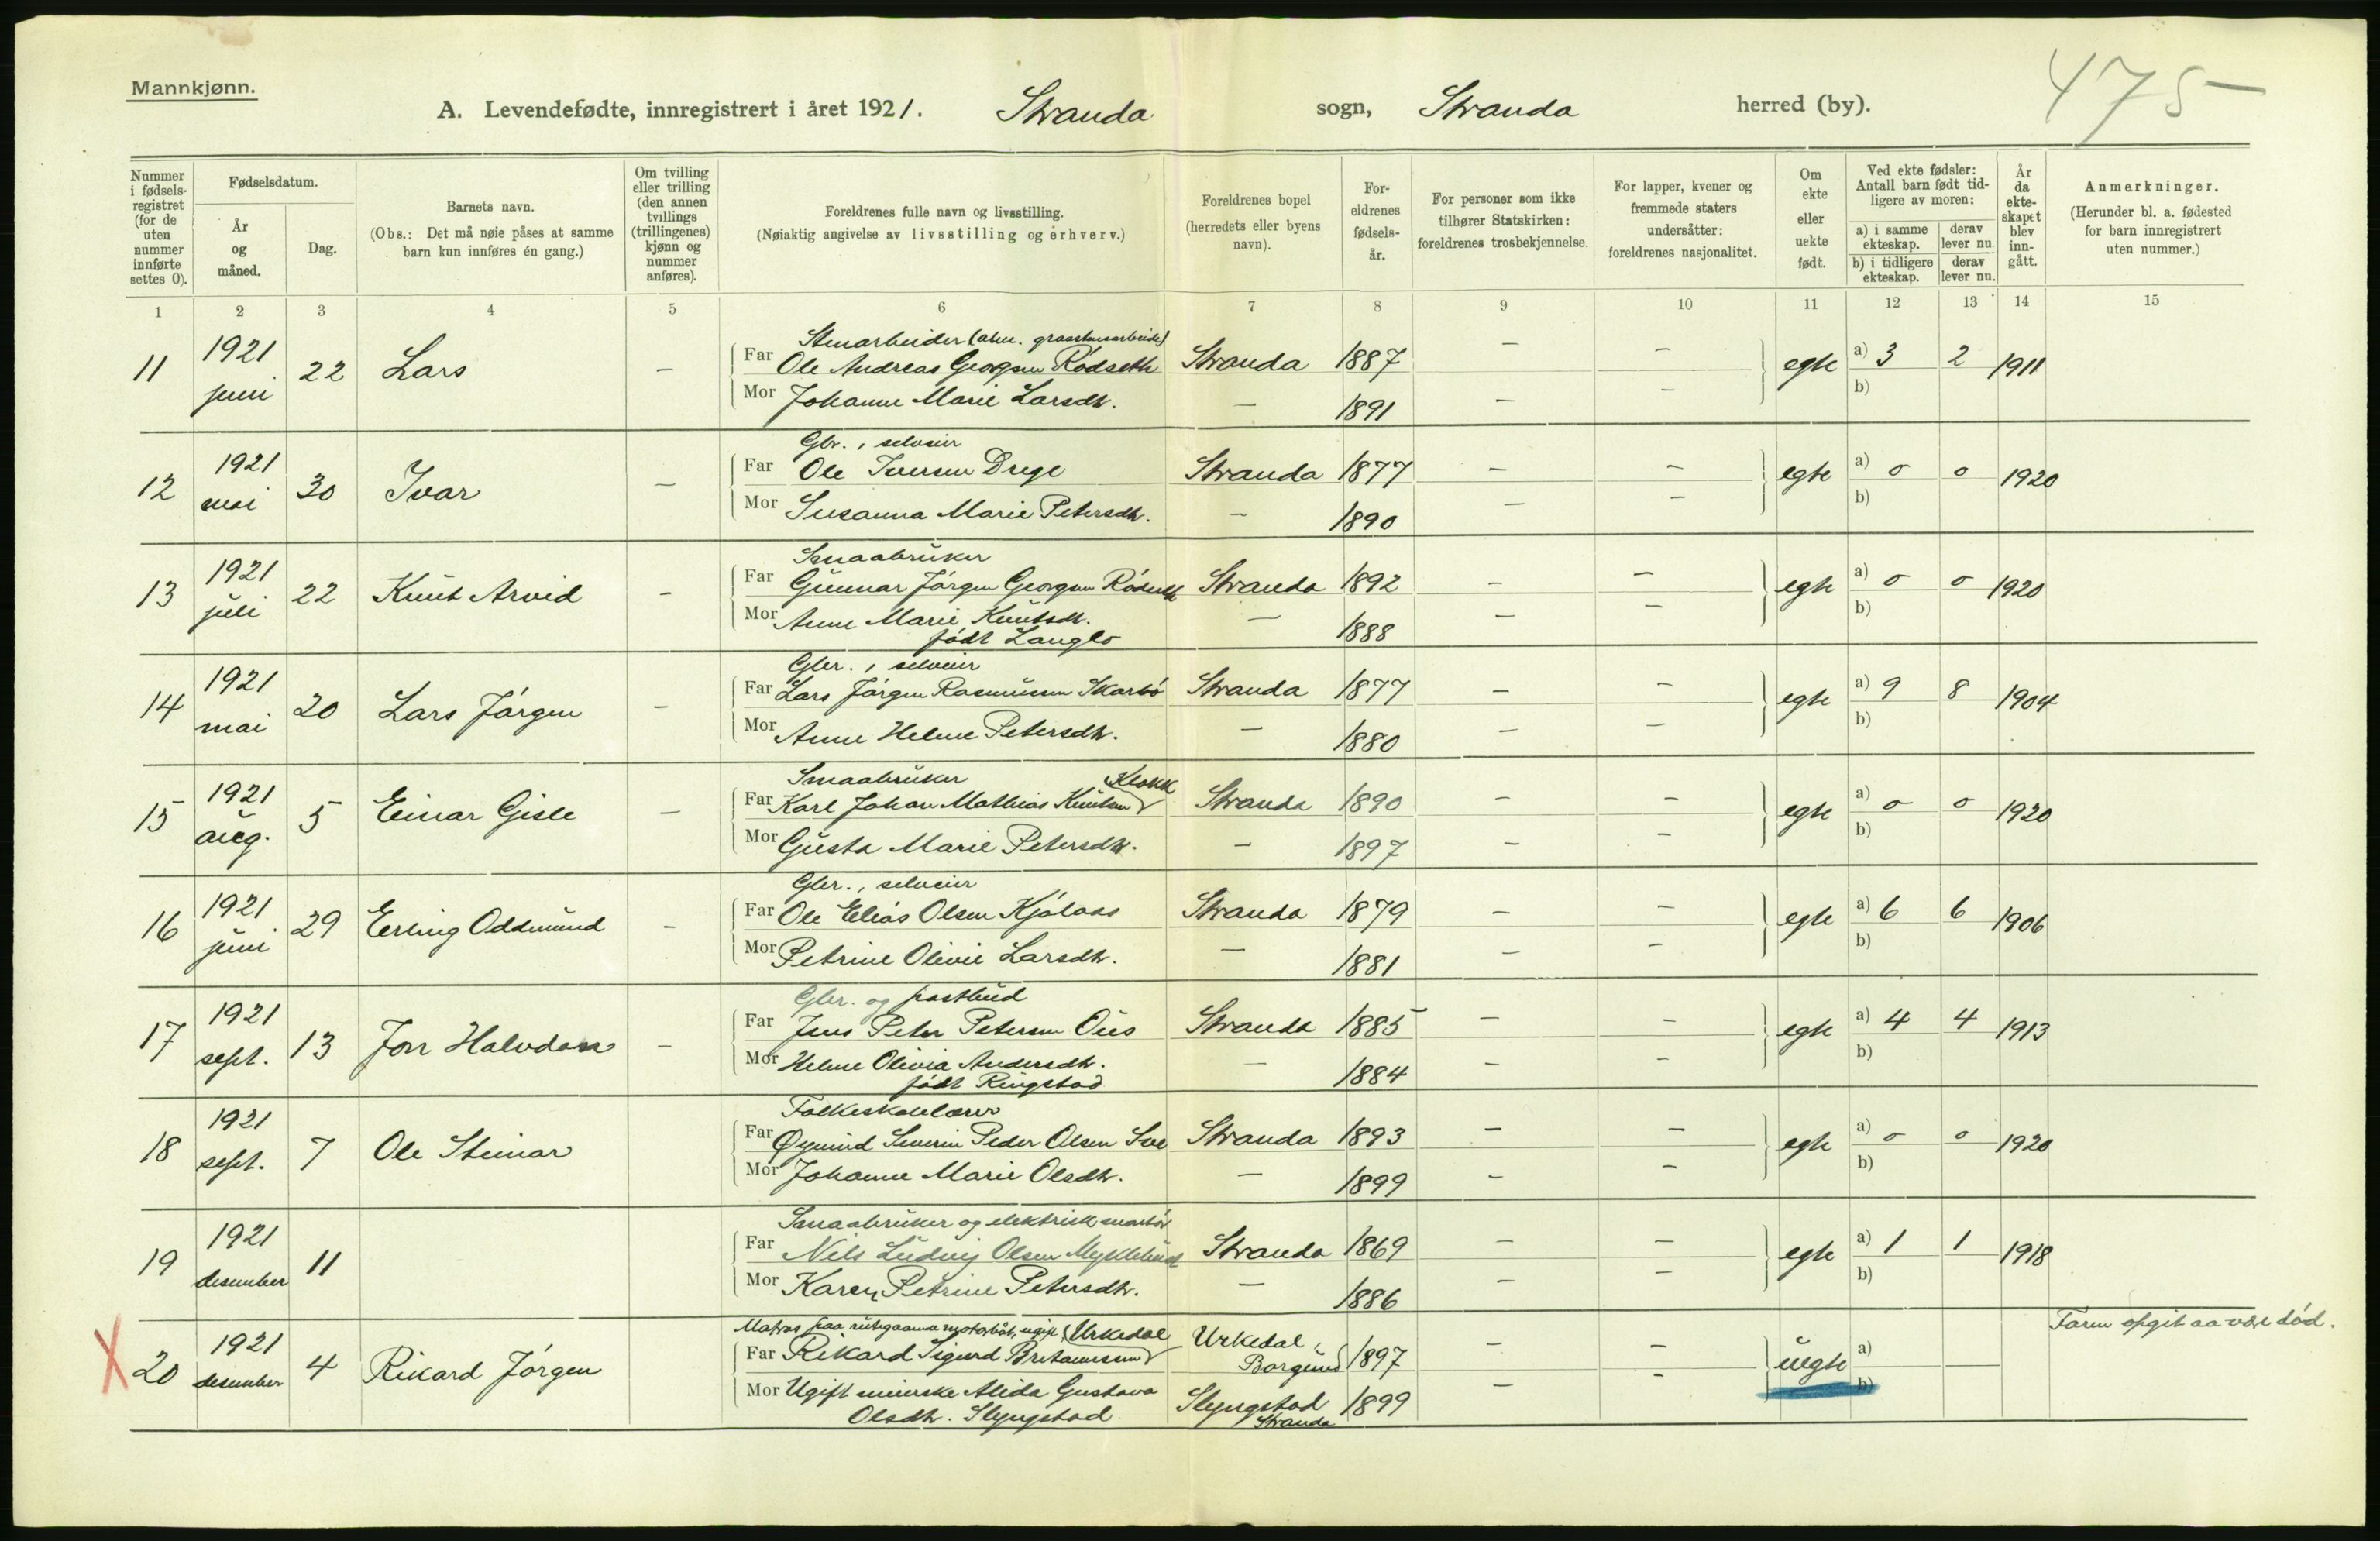 Mannkjønn.
475
A. Levendefødte, innregistrert i året 1921. Stranda sogn, Stranda herred (by).
Nummer i fødsels-registret (for de uten nummer innførte settes 0).
Fødselsdatum.
År og måned.
Dag.
Barnets navn.
(Obs.: Det må nøie påses at samme barn kun innføres én gang.)
Om tvilling eller trilling (den annen tvillings (trillingenes) kjønn og nummer anføres).
Foreldrenes fulle navn og livsstilling.
(Nøiaktig angivelse av livsstilling og erhverv.)
Foreldrenes bopel (herredets eller byens navn).
For-eldrenes fødsels-år.
For personer som ikke tilhører Statskirken: foreldrenes trosbekjennelse.
For lapper, kvener og fremmede staters undersåtter: foreldrenes nasjonalitet.
Om ekte eller uekte født.
Ved ekte fødsler: Antall barn født tid-ligere av moren:
a) i samme ekteskap. derav lever nu.
b) i tidligere ekteskap. derav lever nu.
År da ekte-skapet blev inn-gått.
Anmerkninger.
(Herunder bl. a. fødested for barn innregistrert uten nummer.)
1 2 3 4 5 6 7 8 9 10 11 12 13 14 15
Stenarbeider (alm. graastensarbeide)
11 1921 juni 22 Lars — Far Ole Andreas Georgsen Rödseth Stranda 1887 — — egte a) 3 2 1911
Mor Johanne Marie Larsdtr. — 1891 — — b)
Gbr., selveier
12 1921 mai 30 Ivar — Far Ole Iversen Drege Stranda 1877 — — egte a) 0 0 1920
Mor Susanna Marie Petersdtr. — 1890 — — b)
Smaabruker
13 1921 juli 22 Knut Arvid — Far Gunnar Jörgen Georgsen Rödseth Stranda 1892 — — egte a) 0 0 1920
Mor Anne Marie Knutsdtr. — 1888 — — b)
född Langlo
Gbr., selveier
14 1921 mai 20 Lars Jörgen — Far Lars Jörgen Rasmussen Skarbö Stranda 1877 — — egte a) 9 8 1904
Mor Anne Helene Petersdtr. — 1880 — — b)
Smaabruker
15 1921 aug. 5 Einar Gisle — Far Karl Johan Mathias Knutsen Klokk Stranda 1890 — — egte a) 0 0 1920
Mor Gusta Marie Petersdtr. — 1897 — — b)
Gbr., selveier
16 1921 juni 29 Erling Oddmund — Far Ole Elias Olsen Kjölaas Stranda 1879 — — egte a) 6 6 1906
Mor Petrine Olivie Larsdtr. — 1881 — — b)
Gbr. og postbud
17 1921 sept. 13 Jon Halvdan — Far Jens Peter Petersen Ous Stranda 1885 — — egte a) 4 4 1913
Mor Helene Olivia Andersdtr. — 1884 — — b)
född Ringstad
Folkeskolelærer
18 1921 sept. 7 Ole Steinar Far Øymund Severin Peder Olsen Sve Stranda 1893 — — egte a) 0 0 1920
Mor Johanne Marie Olsdtr. — 1899 — — b)
Smaabruker og elektrisk montör
19 1921 desember 11 Far Nils Ludvig Olsen Myklebust Stranda 1869 — — egte a) 1 1 1918
Mor Karen Petrine Petersdtr. — 1886 — — b)
Matros paa rutegaaende motorbåt, ugift Faren opgit aa være död.
X 20 1921 desember 4 Rikard Jörgen Far Rikard Sigurd Urkedal Urkedal, Borgund 1897 — — uegte a)
Mor Ugift meierske Alida Gustava Slyngstad 1899 — — b)
Olsdtr. Slyngstad Stranda